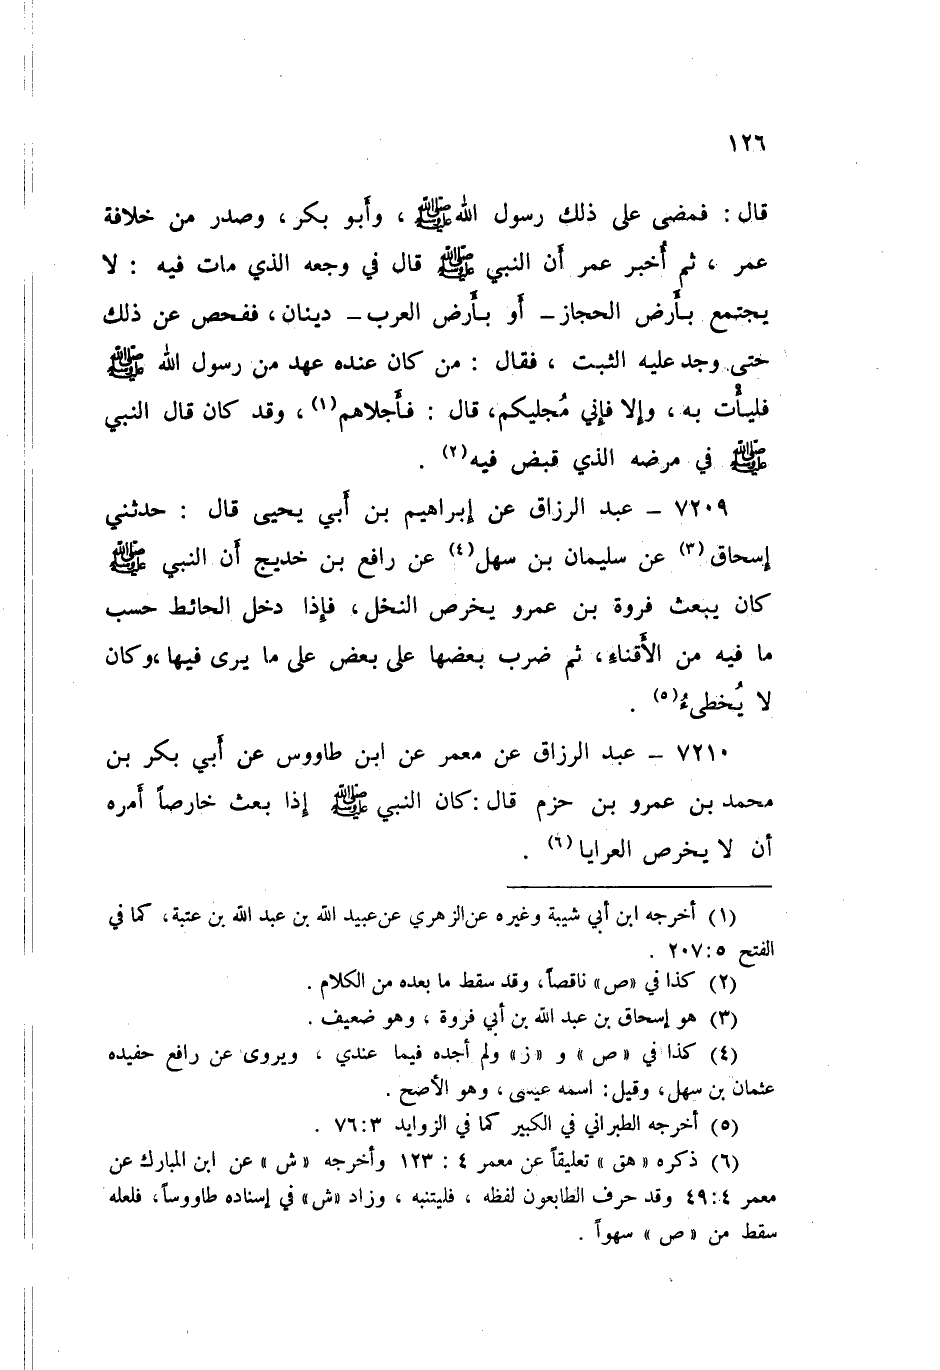 ١٢٦
قال : فمضى على ذلك رسول الله ﷺ ، وأبو بكر ، وصدر من خلافة
عمر ، ثم أُخبر عمر أن النبي ﷺ قال في وجعه الذي مات فيه : لا
يجتمع بأَرض الحجاز – أَو بأَرض العرب – دينان، ففحص عن ذلك
حتى وجد عليه الثبت ، فقال : من كان عنده عهد من رسول الله ﷺ
فليأْت به ، وإلا فإني مُجليكم، قال : فأَجلاهم(١) ، وقد كان قال النبي
ﷺ في مرضه الذي قبض فيه(٢) .
٧٢٠٩ – عبد الرزاق عن إبراهيم بن أَبي يحيى قال : حدثني
إسحاق(٣) عن سليمان بن سهل(٤) عن رافع بن خديج أن النبي ﷺ
كان يبعث فروة بن عمرو يخرص النخل، فإذا دخل الحائط حسب
ما فيه من الأَقناء، ثم ضرب بعضها على بعض على ما يرى فيها ،وكان
لا يُخطىءُ(٥) .
٧٢١٠ – عبد الرزاق عن معمر عن ابن طاووس عن أَبي بكر بن
محمد بن عمرو بن حزم قال : كان النبي ﷺ إذا بعث خارصاً أَمره
أن لا يخرص العرايا(٦) .
(١) أخرجه ابن أبي شيبة وغيره عن الزهري عن عبيد الله بن عبد الله بن عتبة، كما في
الفتح ٥ : ٢٠٧ .
(٢) كذا في «ص» ناقصاً، وقد سقط ما بعده من الكلام .
(٣) هو إسحاق بن عبد الله بن أبي فروة ، وهو ضعيف .
(٤) كذا في « ص » و « ز » ولم أجده فيما عندي ، ويروى عن رافع حفيده
عثمان بن سهل، وقيل : اسمه عيسى ، وهو الأصح .
(٥) أخرجه الطبراني في الكبير كما في الزوايد ٣ : ٧٦ .
(٦) ذكره « هق » تعليقاً عن معمر ٤ : ١٢٣ وأخرجه « ش » عن ابن المبارك عن
معمر ٤ : ٤٩ وقد حرف الطابعون لفظه ، فليتنبه ، وزاد «ش» في إسناده طاووساً، فلعله
سقط من « ص » سهواً .